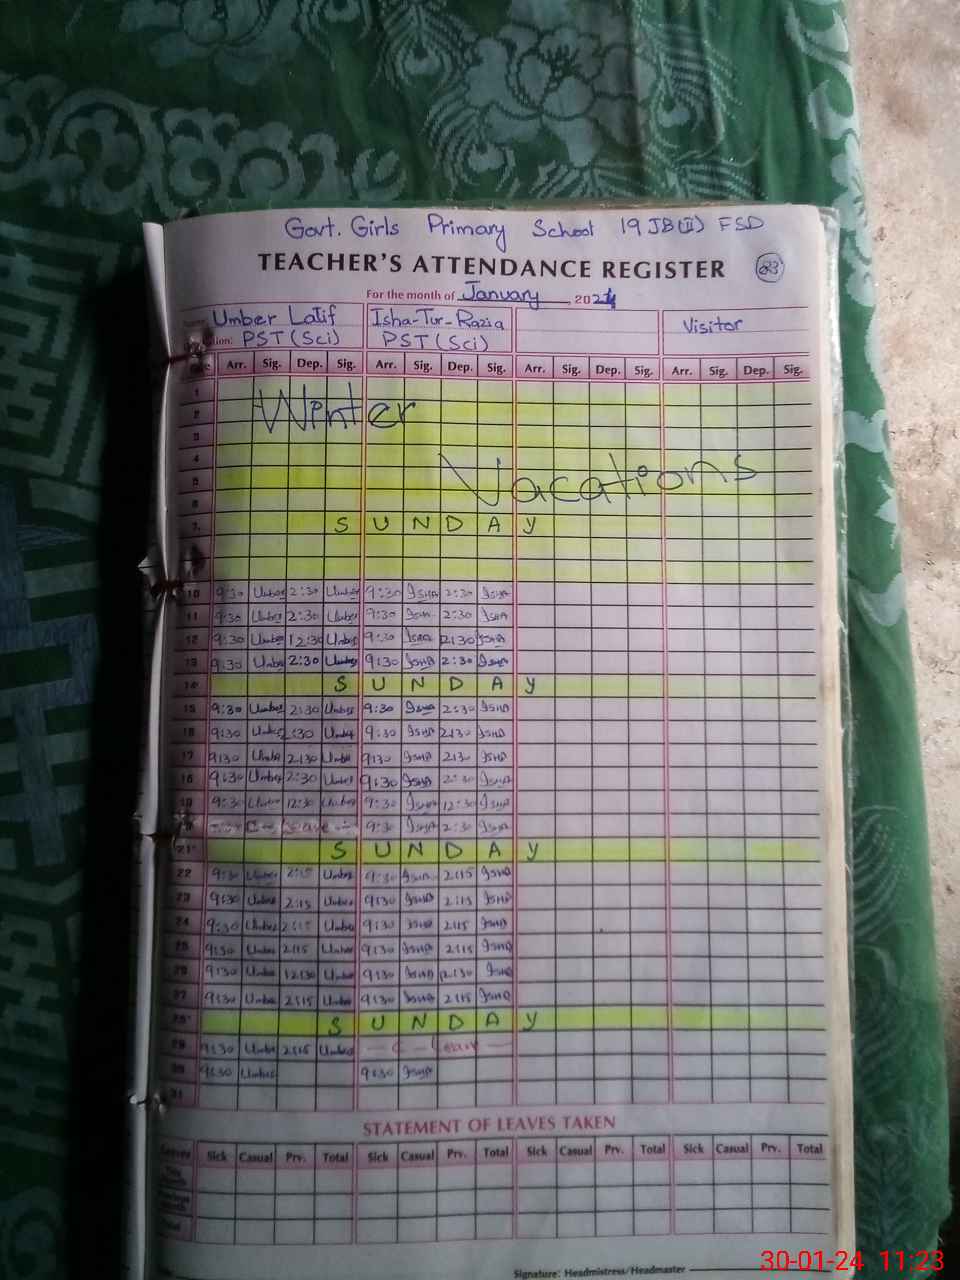 Govt. Girls Primary School 19 JB(II) FSD
TEACHER'S ATTENDANCE REGISTER 83
For the month of January, 2024
Umber Latif Isha-Tur-Razia Visitor
PST (Sci) PST (Sci)
Arr. Sig. Dep. Sig. Arr. Sig. Dep. Sig. Arr. Sig. Dep. Sig. Arr. Sig. Dep. Sig.
1
2 Winter
3
4
5 Vacations
6
7 SUNDAY
10 9:30 Umber 2:30 Umber 9:30 ISHA 2:30 ISHA
11 9:30 Umber 2:30 Umber 9:30 ISHA 2:30 ISHA
12 9:30 Umber 12:30 Umber 9:30 ISHA 12:30 ISHA
13 9:30 Umber 2:30 Umber 9:30 ISHA 2:30 ISHA
14 SUNDAY
15 9:30 Umber 2:30 Umber 9:30 ISHA 2:30 ISHA
16 9:30 Umber 2:30 Umber 9:30 ISHA 2:30 ISHA
17 9:30 Umber 2:30 Umber 9:30 ISHA 2:30 ISHA
18 9:30 Umber 2:30 Umber 9:30 ISHA 2:30 ISHA
19 9:30 Umber 12:30 Umber 9:30 ISHA 12:30 ISHA
— C — Leave — 9:30 ISHA 2:30 ISHA
21 SUNDAY
22 9:30 Umber 2:15 Umber 9:30 ISHA 2:15 ISHA
23 9:30 Umber 2:15 Umber 9:30 ISHA 2:15 ISHA
24 9:30 Umber 2:15 Umber 9:30 ISHA 2:15 ISHA
25 9:30 Umber 2:15 Umber 9:30 ISHA 2:15 ISHA
26 9:30 Umber 12:30 Umber 9:30 ISHA 12:30 ISHA
27 9:30 Umber 2:15 Umber 9:30 ISHA 2:15 ISHA
28 SUNDAY
29 9:30 Umber 2:15 Umber — C — Leave —
30 9:30 Umber 9:30 ISHA
31
STATEMENT OF LEAVES TAKEN
Leaves Sick Casual Prv. Total Sick Casual Prv. Total Sick Casual Prv. Total Sick Casual Prv. Total
Total
Signature: Headmistress/Headmaster
30-01-24 11:23